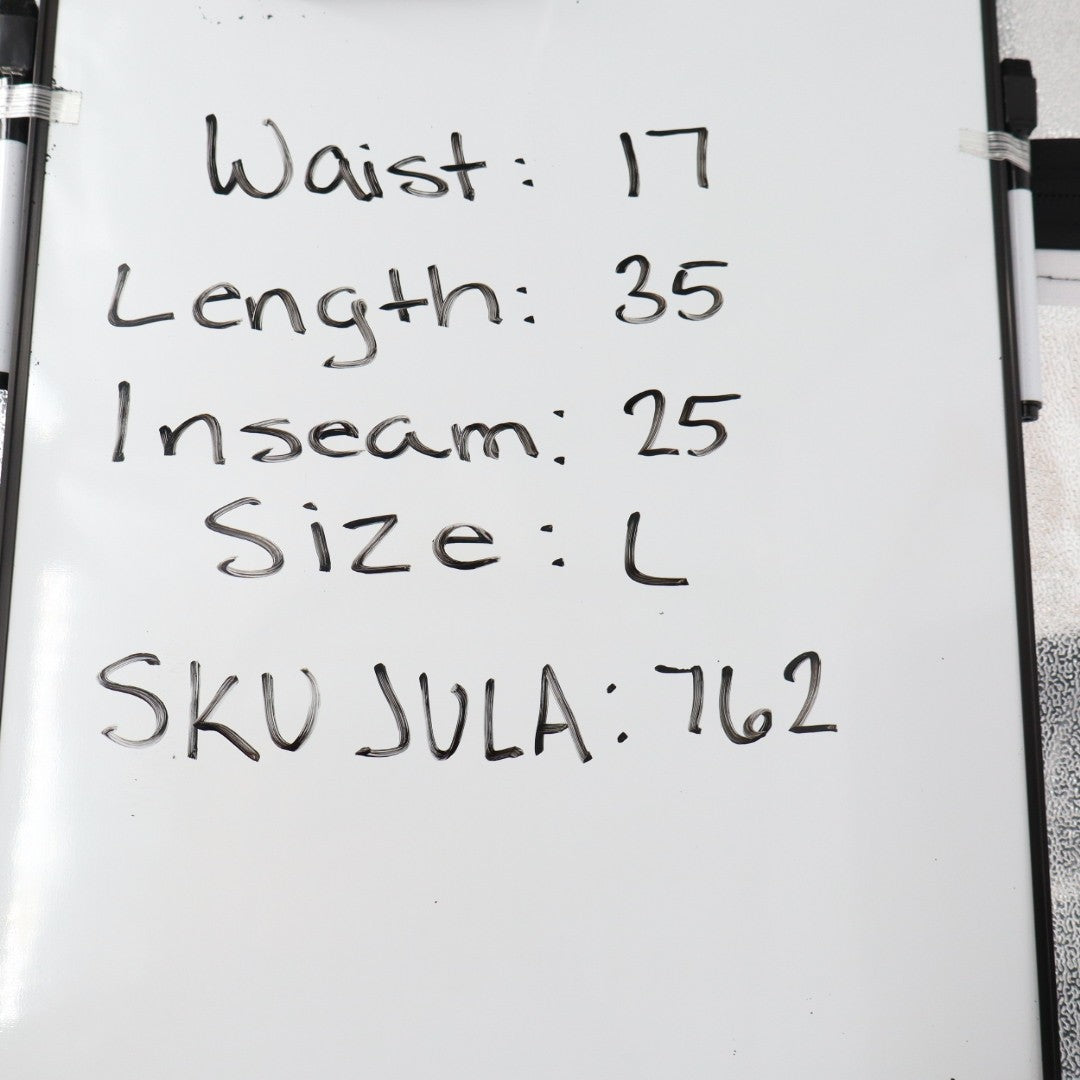 Waist: 17
Length: 35
Inseam: 25
Size: L
SKU JULA: 762